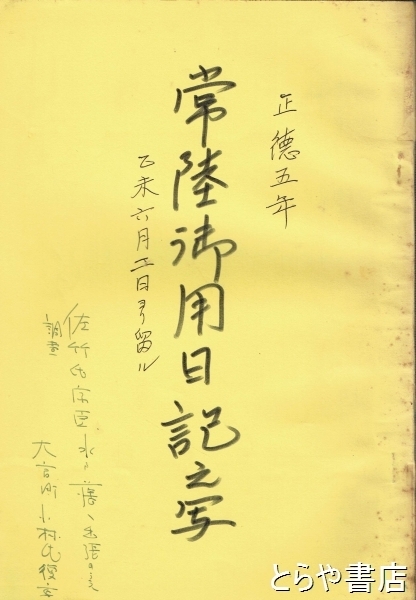 正徳五年
常陸御用日記之写
乙未六月二日ヨリ留ル
佐竹氏家臣水戸藩へ出張の
調査
大高氏小村氏
とらや書店